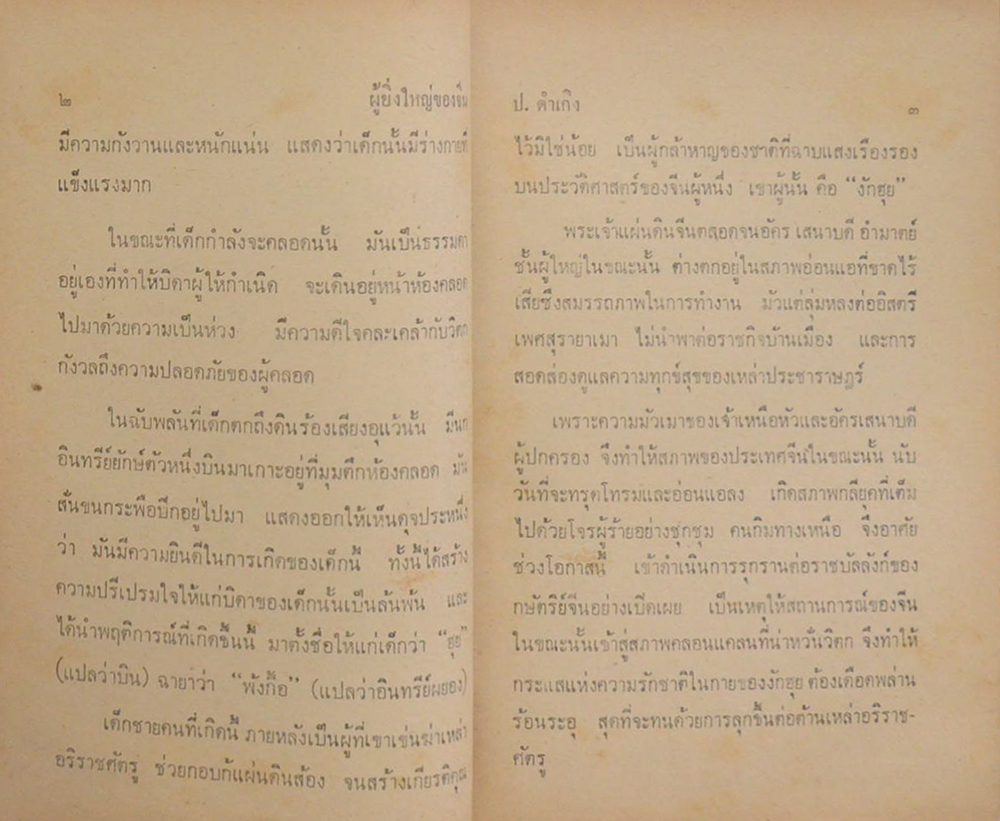 ๒
ผู้ยิ่งใหญ่ของจีน
มีความกังวานและหนักแน่น แสดงว่าเด็กนั้นมีร่างกายที่
แข็งแรงมาก
ในขณะที่เด็กกำลังจะคลอดนั้น มันเป็นธรรมดา
อยู่เองที่ทำให้บิดาผู้ให้กำเนิด จะเดินอยู่หน้าห้องคลอด
ไปมาด้วยความเป็นห่วง มีความดีใจคละเคล้ากับวิตก
กังวลถึงความปลอดภัยของผู้คลอด
ในฉับพลันที่เด็กตกถึงดินร้องเสียงอุแว้นั้น มีนก
อินทรีย์ยักษ์ตัวหนึ่งบินมาเกาะอยู่ที่มุมตึกห้องคลอด มัน
สั่นขนกระพือปีกอยู่ไปมา แสดงออกให้เห็นดุจประหนึ่ง
ว่า มันมีความยินดีในการเกิดของเด็กนี้ ทั้งนี้ได้สร้าง
ความปรีเปรมใจให้แก่บิดาของเด็กนั้นเป็นล้นพ้น และ
ได้นำพฤติการณ์ที่เกิดขึ้นนี้ มาตั้งชื่อให้แก่เด็กว่า “ฮุย”
(แปลว่าบิน) ฉายาว่า “พ้งก้อ” (แปลว่าอินทรีย์ผยอง)
เด็กชายคนที่เกิดนี้ ภายหลังเป็นผู้ที่เขาเข่นฆ่าเหล่า
อริราชศัตรู ช่วยกอบกู้แผ่นดินส้อง จนสร้างเกียรติคุณ
ป. ดำเกิง
๓
ไว้มิใช่น้อย เป็นผู้กล้าหาญของชาติที่ฉาบแสงเรืองรอง
บนประวัติศาสตร์ของจีนผู้หนึ่ง เขาผู้นั้น คือ “งักฮุย”
พระเจ้าแผ่นดินจีนตลอดจนอัคร เสนาบดี อำมาตย์
ชั้นผู้ใหญ่ในขณะนั้น ต่างตกอยู่ในสภาพอ่อนแอที่ขาดไร้
เสียซึ่งสมรรถภาพในการทำงาน มัวแต่ลุ่มหลงต่ออิสตรี
เพศสุรายาเมา ไม่นำพาต่อราชกิจบ้านเมือง และการ
สอดส่องดูแลความทุกข์สุขของเหล่าประชาราษฎร์
เพราะความมัวเมาของเจ้าเหนือหัวและอัครเสนาบดี
ผู้ปกครอง จึงทำให้สภาพของประเทศจีนในขณะนั้น นับ
วันที่จะทรุดโทรมและอ่อนแอลง เกิดสภาพกลียุคที่เต็ม
ไปด้วยโจรผู้ร้ายอย่างชุกชุม คนกิมทางเหนือ จึงอาศัย
ช่วงโอกาสนี้ เข้าดำเนินการรุกรานต่อราชบัลลังก์ของ
กษัตริย์จีนอย่างเปิดเผย เป็นเหตุให้สถานการณ์ของจีน
ในขณะนั้นเข้าสู่สภาพคลอนแคลนที่น่าหวั่นวิตก จึงทำให้
กระแสแห่งความรักชาติในกายของงักฮุย ต้องเดือดพล่าน
ร้อนระอุ สุดที่จะทนด้วยการลุกขึ้นต่อต้านเหล่าอริราช-
ศัตรู